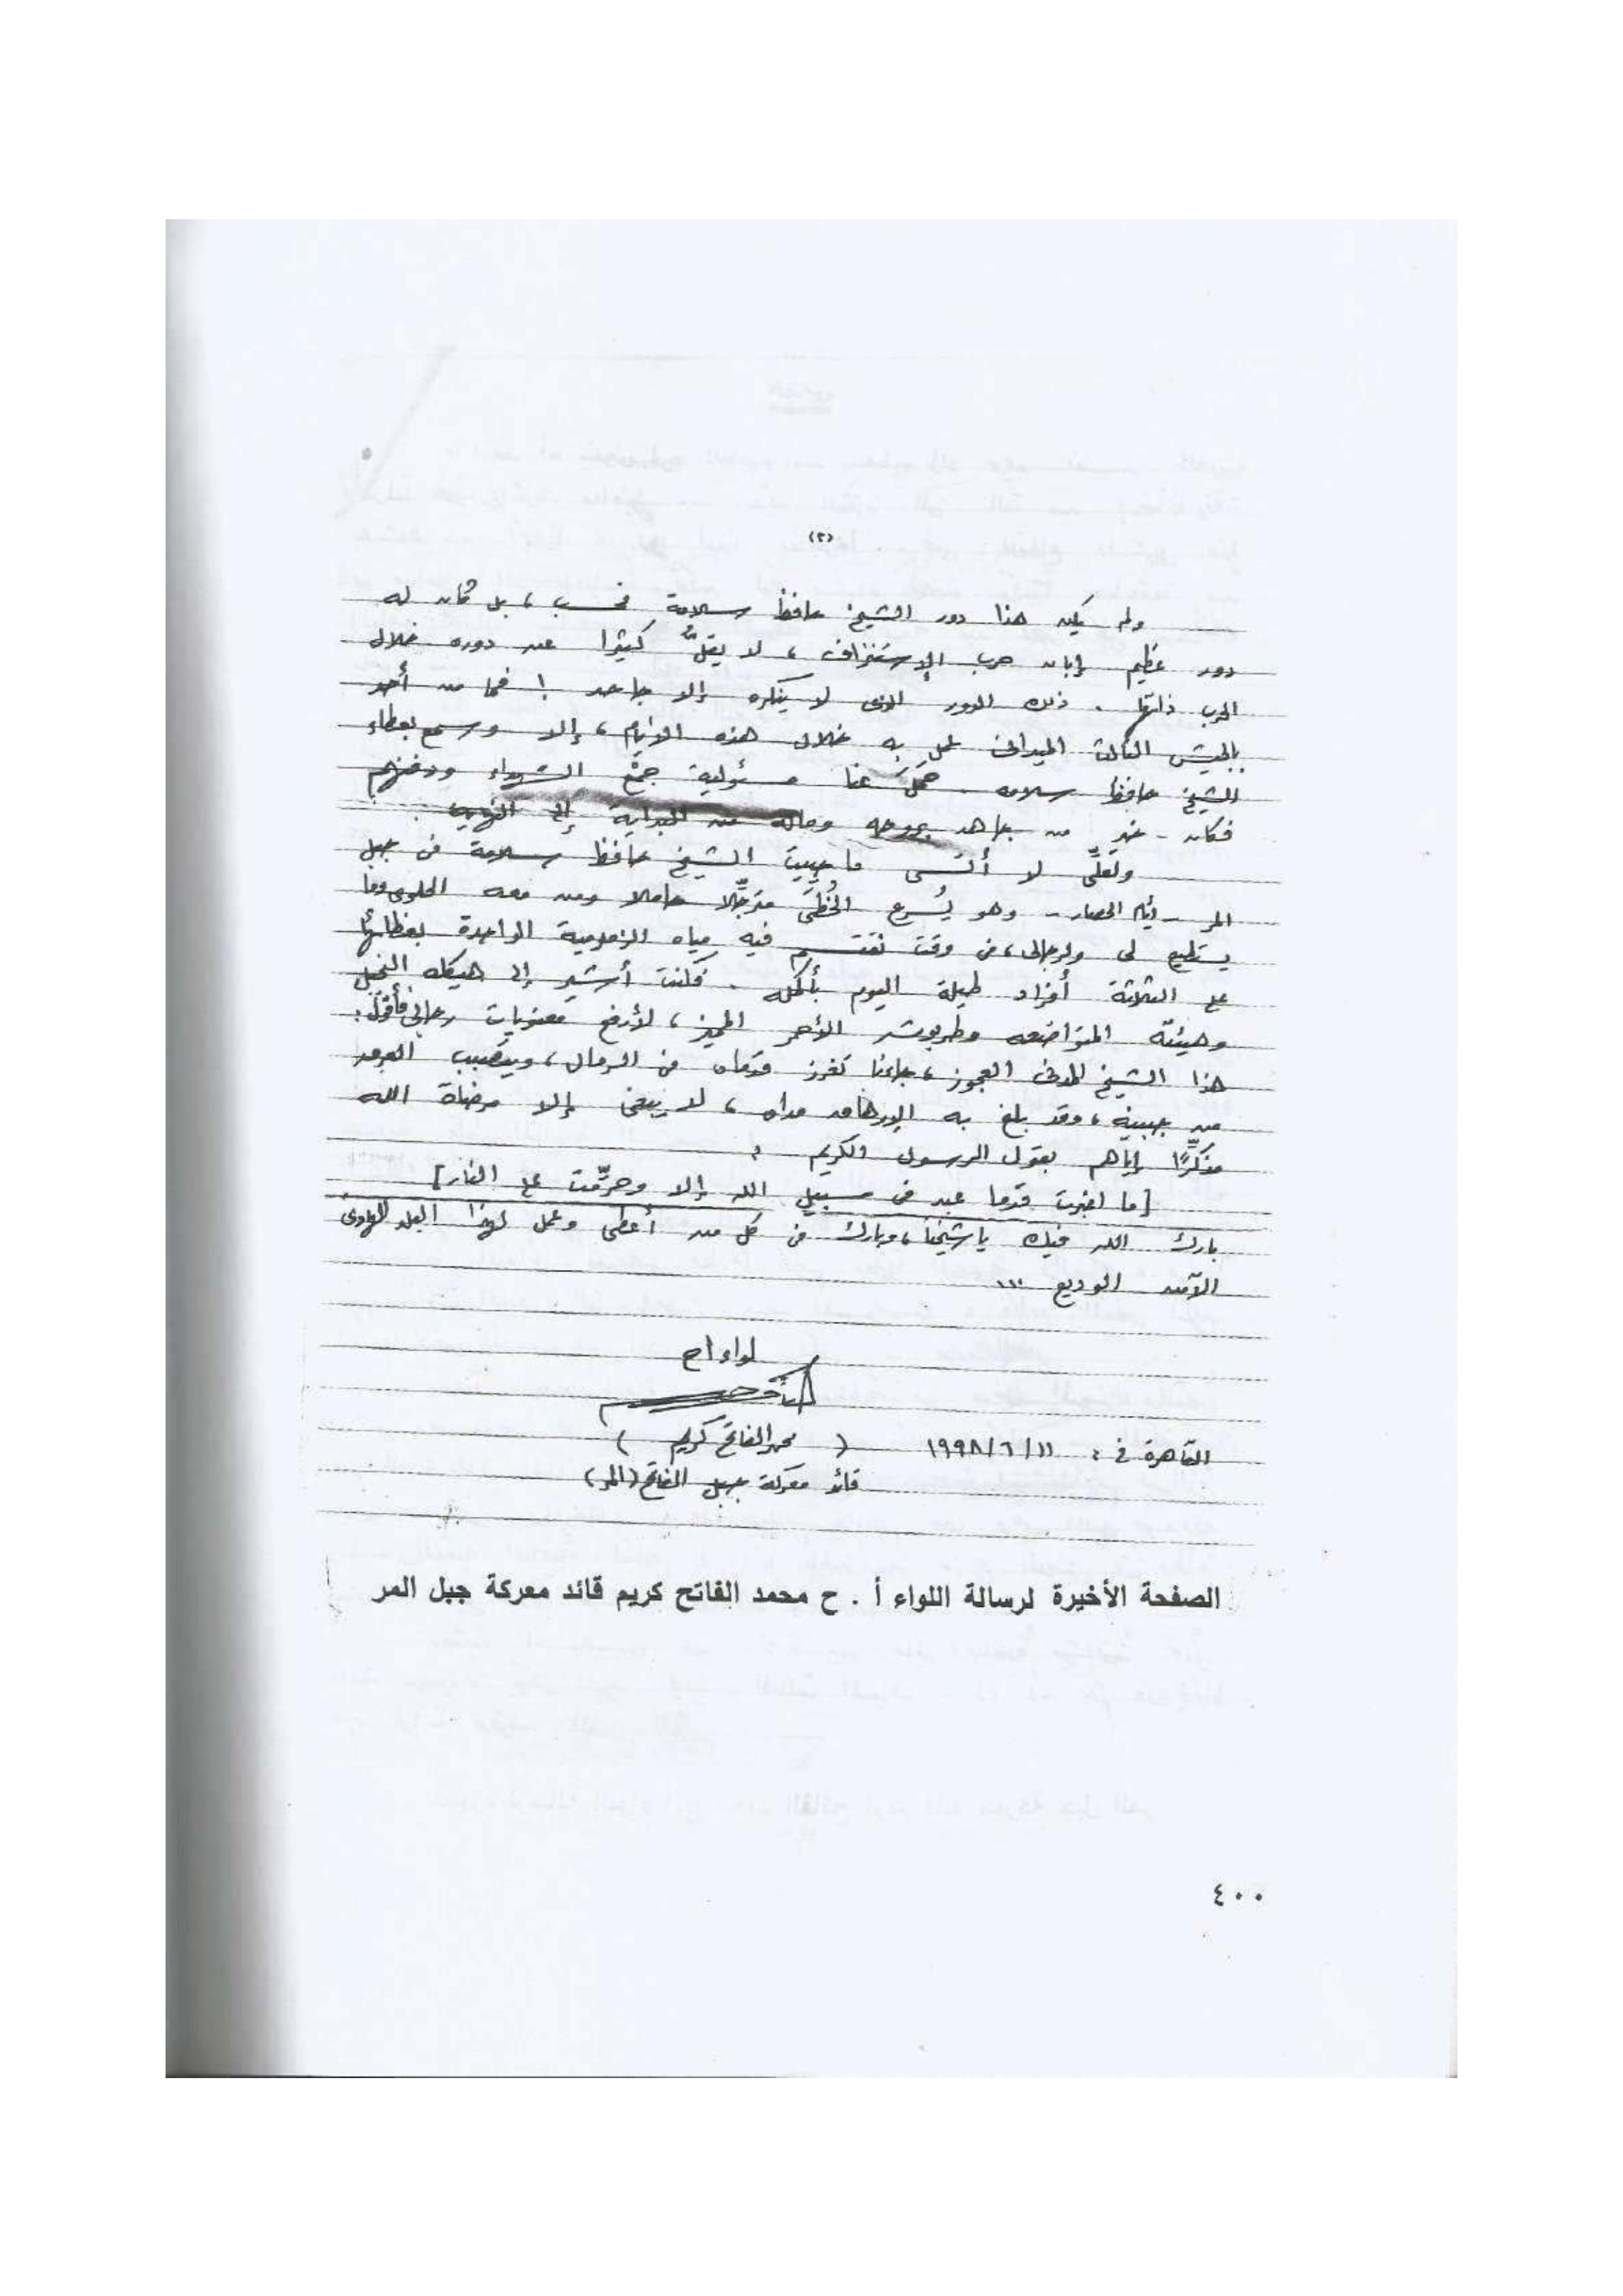 (٢)
ولم يكن هذا دور الشيخ حافظ سلامة فحسب، بل كان له
دور عظيم إبان حرب الإستنزاف، لا يقلُّ كثيرا عن دوره خلال
الحرب ذاتها. ذلك الدور الذى لا ينكره إلا جاحد! فما من أحد
بالجيش الثالث الميدانى عمل به خلال هذه الأيام، إلا وسمع بعطاء
الشيخ حافظ سلامه. حمَلَ عنا مسئولية جمْع الشهداء ودفنهم
فكان - خير من جاهد بروحه وماله من البداية إلى النهاية.
ولعلّى لا أنسى ما حييت الشيخ حافظ سلامة فى جبل
المر - أيام الحصار - وهو يُسرع الخُطىَ مترجِّلا حاملا ومن معه الحلوى وما
يستطيع لى ولرجالى، فى وقت نقتسم فيه مياه الزمزمية الواحدة بغطائها
على الثلاثة أفراد طيلة اليوم بأكمله. فكنت أشير إلى هيكله النحيل
وهيئته المتواضعه وطربوشه الأحمر المميز، لأرفع معنويات رجالى فأقول:
هذا الشيخ المدنى العجوز، جاءنا تغرز قدماه فى الرمال، ويتصبب العرق
من جبينه، وقد بلغ به الإرهاق مداه، لا يبغى إلا مرضاة الله
مذكِّرًا إياهم بقول الرسول الكريم :
[ما اغبرت قدما عبد فى سبيل الله إلا وحرِّمت على النار]
بارك الله فيك يا شيخنا، وبارك فى كل من أعطى وعمل لهذا البلد الهادئ
الآمن الوديع ...
لواء أح
القاهرة فى : ١١/ ٦/ ١٩٩٨ ( محمد الفاتح كريم )
قائد معركة جبل الفاتح (المر)
الصفحة الأخيرة لرسالة اللواء أ . ح محمد الفاتح كريم قائد معركة جبل المر
٤٠٠